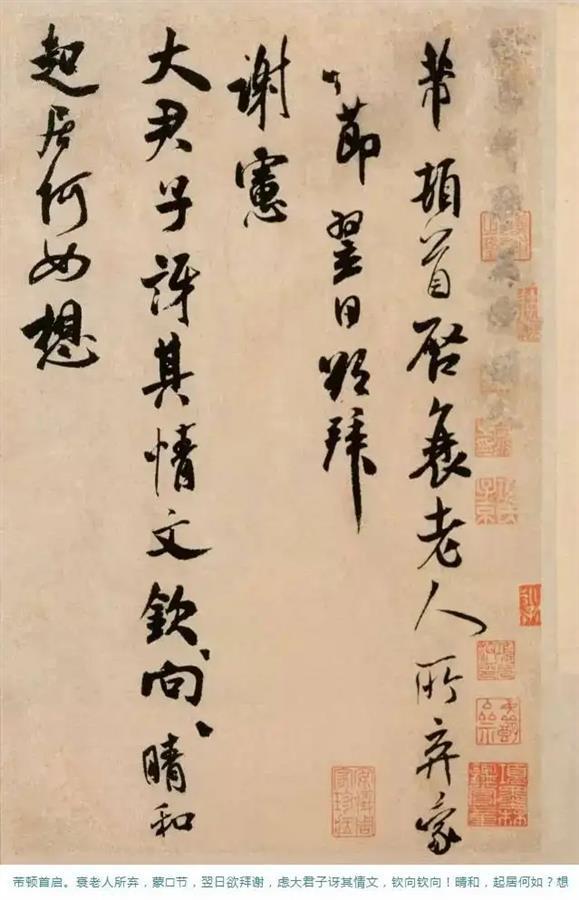 芾頓首启衰老人所弃蒙
節翌日欲拜
謝憲
大君子訝其情文欽〻向〻晴和
起居何如想
芾顿首启。衰老人所弃，蒙口节，翌日欲拜谢，虑大君子讶其情文，钦向钦向！晴和，起居何如？想